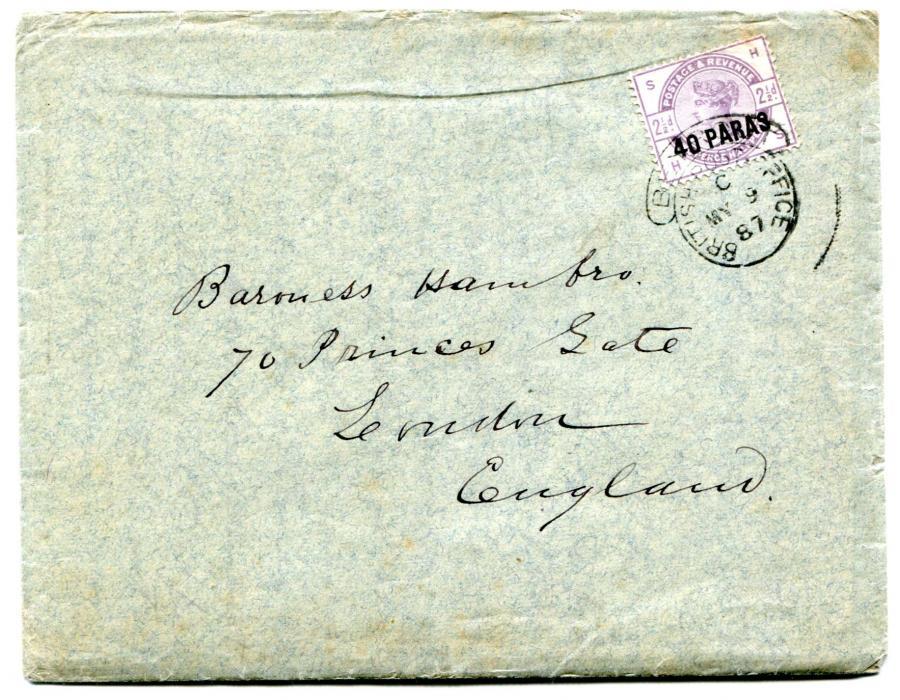 S H
POSTAGE & REVENUE
2½d. 2½d.
40 PARAS
H S
BRITISH OFFICE
C
MY 9
87
Baroness Hambro.
70 Princes Gate
London
England.